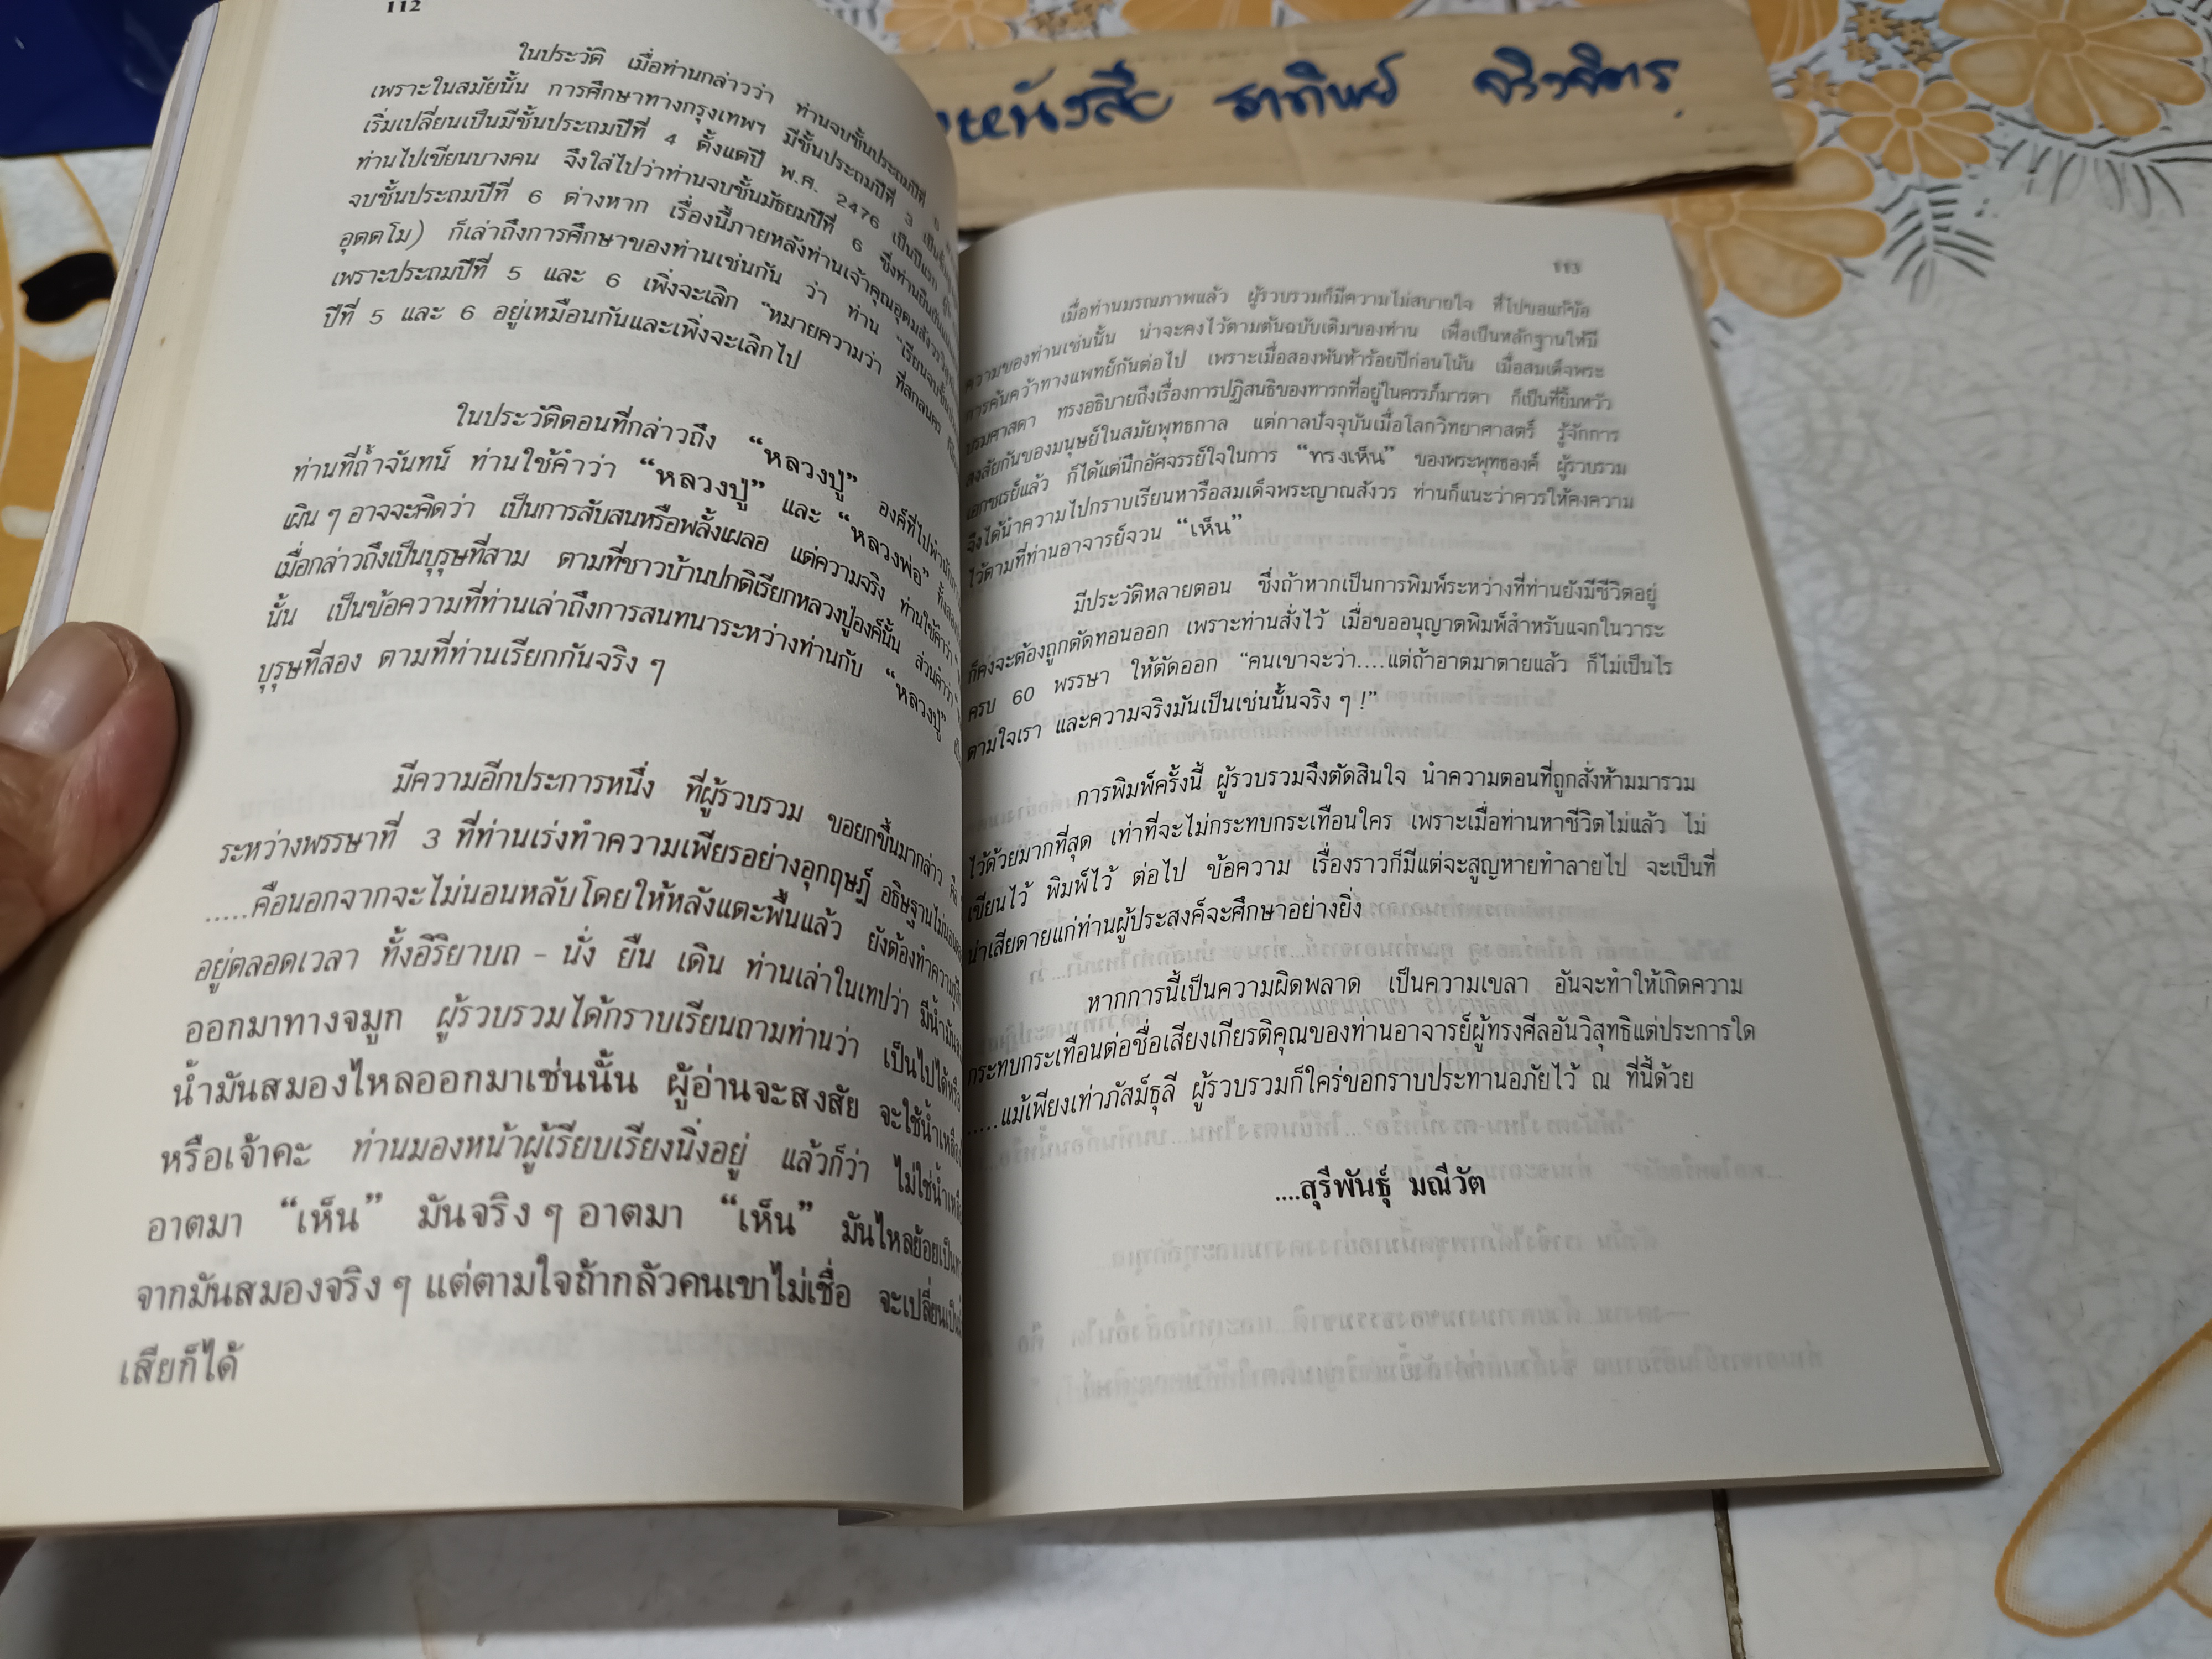 112
ในประวัติ เมื่อท่านกล่าวว่า ท่านจบชั้นประถมปีที่ 6
เพราะในสมัยนั้น การศึกษาทางกรุงเทพฯ มีชั้นประถมปีที่ 3 เป็น
เริ่มเปลี่ยนเป็นมีชั้นประถมปีที่ 4 ตั้งแต่ปี พ.ศ. 2476 เป็นปีแรก
ท่านไปเขียนบางคน จึงใส่ไปว่าท่านจบชั้นมัธยมปีที่ 6 ซึ่งท่านยืนยัน
จบชั้นประถมปีที่ 6 ต่างหาก เรื่องนี้ภายหลังท่านเจ้าคุณอุดมสังวร
อุตตโม) ก็เล่าถึงการศึกษาของท่านเช่นกัน ว่า ท่าน "เรียนจบชั้น
เพราะประถมปีที่ 5 และ 6 เพิ่งจะเลิก "หมายความว่า ที่สกลนคร
ปีที่ 5 และ 6 อยู่เหมือนกันและเพิ่งจะเลิกไป
ในประวัติตอนที่กล่าวถึง "หลวงปู่" องค์ที่ไปพำนัก
ท่านที่ถ้ำจันทน์ ท่านใช้คำว่า "หลวงปู่" และ "หลวงพ่อ"
เผิน ๆ อาจจะคิดว่า เป็นการสับสนหรือพลั้งเผลอ แต่ความจริง ท่านใช้คำว่า
เมื่อกล่าวถึงเป็นบุรุษที่สาม ตามที่ชาวบ้านปกติเรียกหลวงปู่องค์นั้น ส่วนคำว่า
นั้น เป็นข้อความที่ท่านเล่าถึงการสนทนาระหว่างท่านกับ "หลวงปู่"
บุรุษที่สอง ตามที่ท่านเรียกกันจริง ๆ
มีความอีกประการหนึ่ง ที่ผู้รวบรวม ขอยกขึ้นมากล่าว คือ
ระหว่างพรรษาที่ 3 ที่ท่านเร่งทำความเพียรอย่างอุกฤษฏ์ อธิษฐานไม่นอน
.....คือนอกจากจะไม่นอนหลับโดยให้หลังแตะพื้นแล้ว ยังต้องทำความรู้สึก
อยู่ตลอดเวลา ทั้งอิริยาบถ - นั่ง ยืน เดิน ท่านเล่าในเทปว่า มีน้ำมัน
ออกมาทางจมูก ผู้รวบรวมได้กราบเรียนถามท่านว่า เป็นไปได้หรือ
น้ำมันสมองไหลออกมาเช่นนั้น ผู้อ่านจะสงสัย จะใช้น้ำเหลือง
หรือเจ้าคะ ท่านมองหน้าผู้เรียบเรียงนิ่งอยู่ แล้วก็ว่า ไม่ใช่น้ำเหลือง
อาตมา "เห็น" มันจริง ๆ อาตมา "เห็น" มันไหลย้อยเป็น
จากมันสมองจริง ๆ แต่ตามใจถ้ากลัวคนเขาไม่เชื่อ จะเปลี่ยนเป็น
เสียก็ได้
หนังสือ ธาทิพย์ จริงจิตร
113
เมื่อท่านมรณภาพแล้ว ผู้รวบรวมก็มีความไม่สบายใจ ที่ไปขอแก้ข้อ
ความของท่านเช่นนั้น น่าจะคงไว้ตามต้นฉบับเดิมของท่าน เพื่อเป็นหลักฐานให้มี
การค้นคว้าทางแพทย์กันต่อไป เพราะเมื่อสองพันห้าร้อยปีก่อนโน้น เมื่อสมเด็จพระ
บรมศาสดา ทรงอธิบายถึงเรื่องการปฏิสนธิของทารกที่อยู่ในครรภ์มารดา ก็เป็นที่ยิ้มหวัว
สงสัยกันของมนุษย์ในสมัยพุทธกาล แต่กาลปัจจุบันเมื่อโลกวิทยาศาสตร์ รู้จักการ
เอกซเรย์แล้ว ก็ได้แต่นึกอัศจรรย์ใจในการ "ทรงเห็น" ของพระพุทธองค์ ผู้รวบรวม
จึงได้นำความไปกราบเรียนหารือสมเด็จพระญาณสังวร ท่านก็แนะว่าควรให้คงความ
ไว้ตามที่ท่านอาจารย์จวน "เห็น"
มีประวัติหลายตอน ซึ่งถ้าหากเป็นการพิมพ์ระหว่างที่ท่านยังมีชีวิตอยู่
ก็คงจะต้องถูกตัดทอนออก เพราะท่านสั่งไว้ เมื่อขออนุญาตพิมพ์สำหรับแจกในวาระ
ครบ 60 พรรษา ให้ตัดออก "คนเขาจะว่า....แต่ถ้าอาตมาตายแล้ว ก็ไม่เป็นไร
ตามใจเรา และความจริงมันเป็นเช่นนั้นจริง ๆ !"
การพิมพ์ครั้งนี้ ผู้รวบรวมจึงตัดสินใจ นำความตอนที่ถูกสั่งห้ามมารวม
ไว้ด้วยมากที่สุด เท่าที่จะไม่กระทบกระเทือนใคร เพราะเมื่อท่านหาชีวิตไม่แล้ว ไม่
เขียนไว้ พิมพ์ไว้ ต่อไป ข้อความ เรื่องราวก็มีแต่จะสูญหายทำลายไป จะเป็นที่
น่าเสียดายแก่ท่านผู้ประสงค์จะศึกษาอย่างยิ่ง
หากการนี้เป็นความผิดพลาด เป็นความเขลา อันจะทำให้เกิดความ
กระทบกระเทือนต่อชื่อเสียงเกียรติคุณของท่านอาจารย์ผู้ทรงศีลอันวิสุทธิแต่ประการใด
.....แม้เพียงเท่าภัสม์ธุลี ผู้รวบรวมก็ใคร่ขอกราบประทานอภัยไว้ ณ ที่นี้ด้วย
....สุรีพันธุ์ มณีวัต